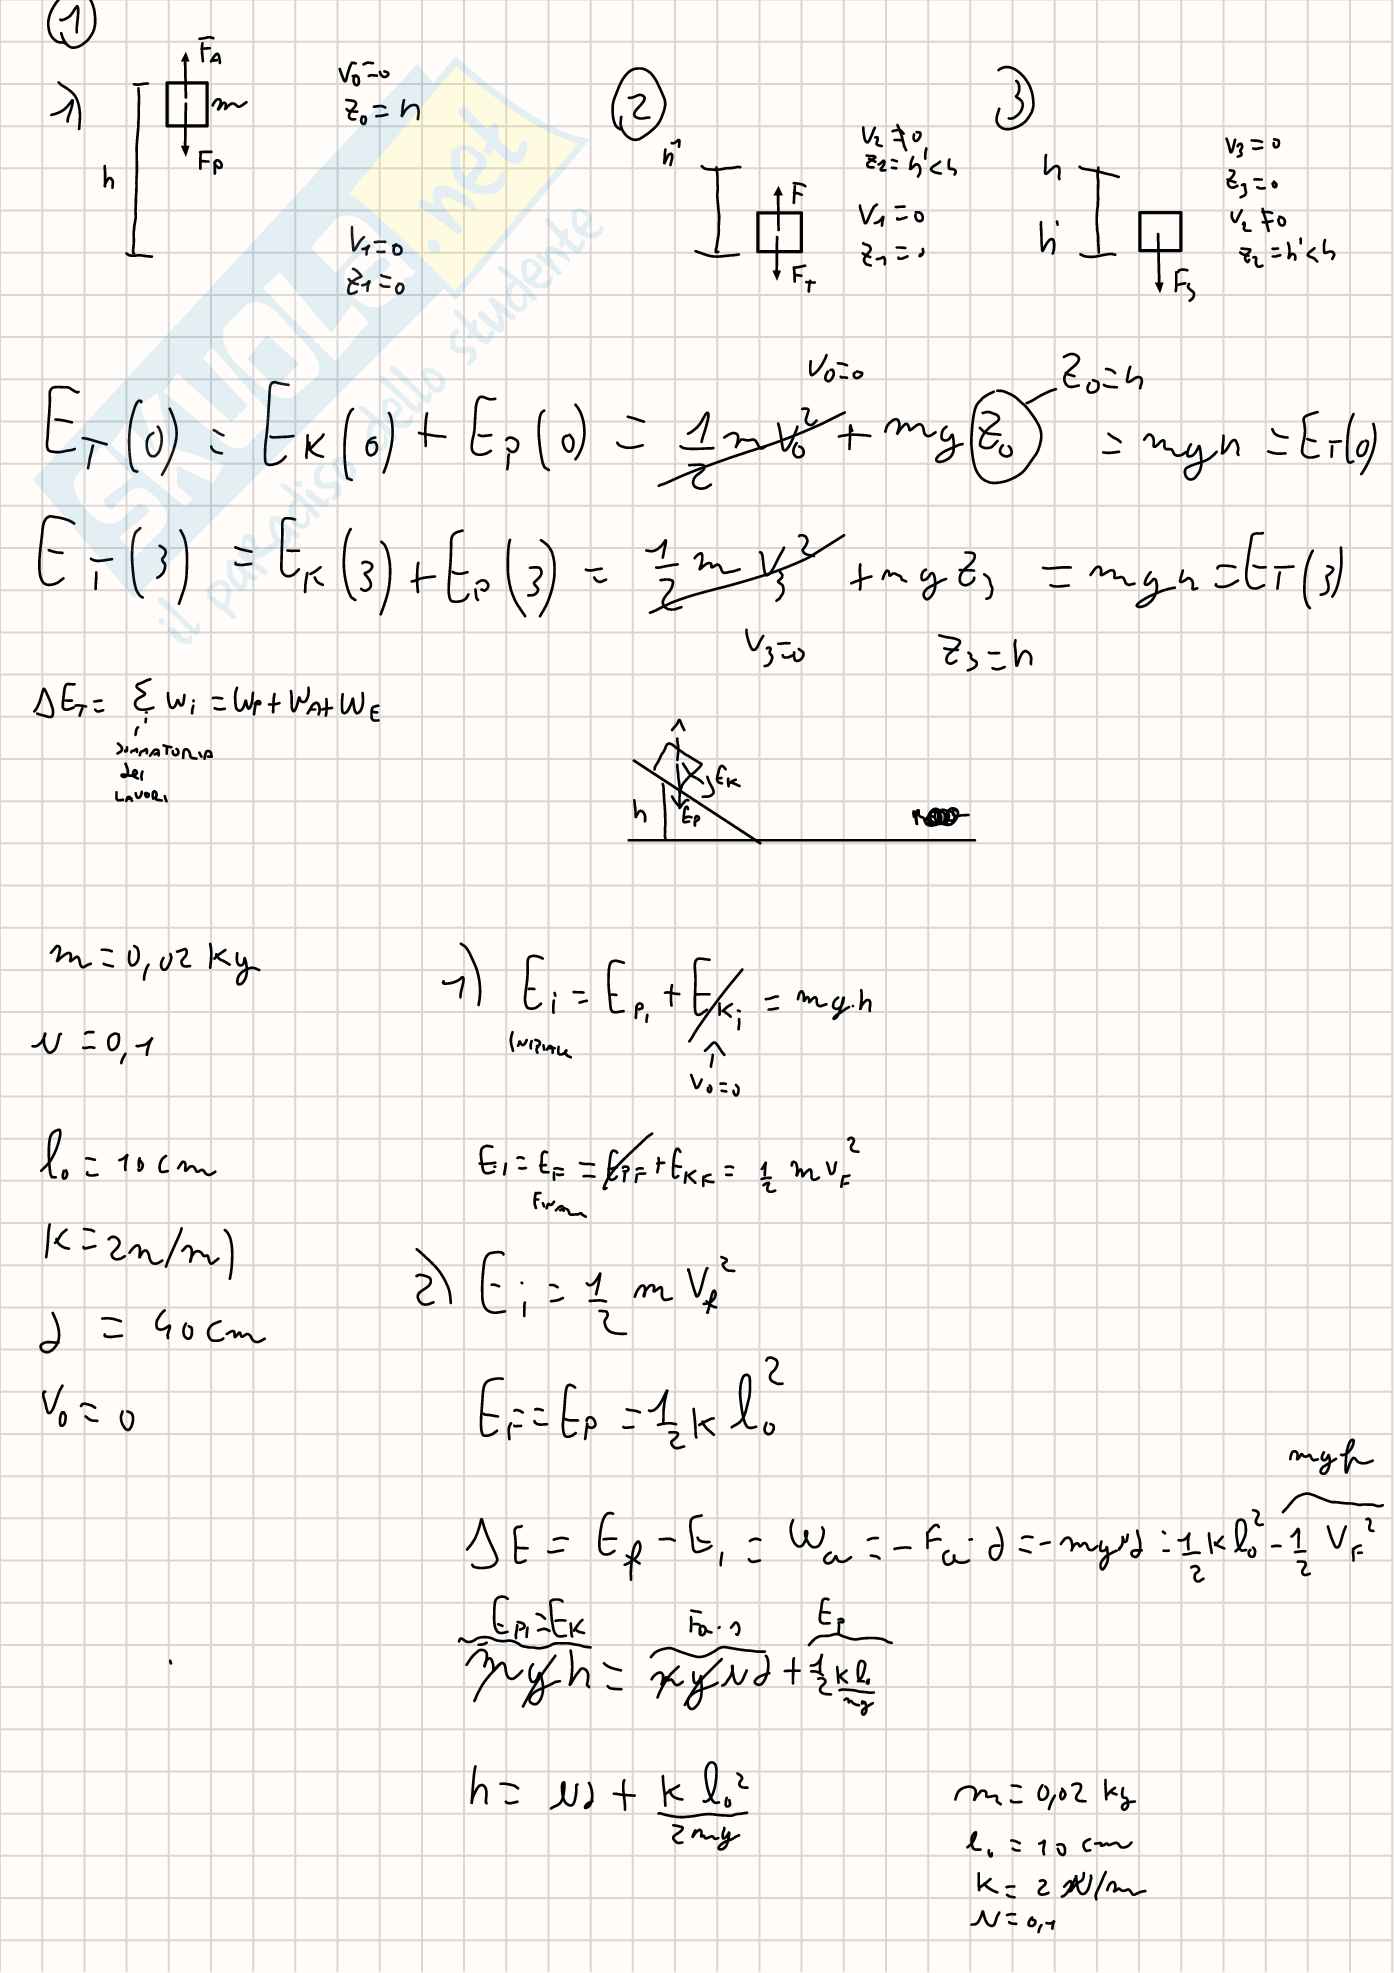 ①
1)
F_A
m
F_P
h
V₀=0
Z₀=h
V₁=0
Z₁=0
②
h
F
F_T
V₂≠0
Z₂=h'<h
V₁=0
Z₁=0
③
h
h'
F_3
V₃=0
Z₃=0
V₂≠0
Z₂=h'<h
SKUOLA.net
il paradiso dello studente
V₀=0
Z₀=h
E_T(0) = E_K(0) + E_P(0) = 1/2 m V₀² + mg Z₀ = mgh = E_T(0)
E_T(3) = E_K(3) + E_P(3) = 1/2 m V₃² + mg Z₃ = mgh = E_T(3)
V₃=0
Z₃=h
ΔE_T = Σ_i W_i = W_P + W_A + W_E
SOMMATORIA
dei
LAVORI
h
E_K
E_P
m = 0,02 kg
μ = 0,1
l₀ = 10 cm
K = 2n/m)
d = 40 cm
V₀ = 0
1) E_i = E_Pi + E_Ki = mg·h
INIZIALE
V₀=0
E_i = E_F = E_PF + E_KF = 1/2 m V_F²
FINALE
2) E_i = 1/2 m V_f²
E_F = E_P = 1/2 K l₀²
mgh
ΔE = E_f - E_i = W_a = -F_a · d = -mgμd = 1/2 K l₀² - 1/2 V_F²
E_Pi = E_K
F_a · d
E_P
mgh = mgμd + 1/2 K l₀/mg
h = μd + K l₀²/2mg
m = 0,02 kg
l₀ = 10 cm
K = 2 N/m
μ = 0,1